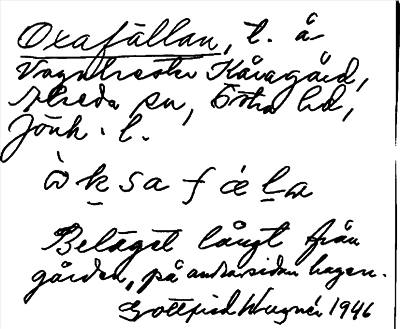 Oxafällan, t. å
Kåragård,
Alseda sn, Östra hd,
Jönk. l.
ò̱ḵsafǽḻa
Beläget långt från
gården, på andra sidan hagen.
Gottfrid 1946